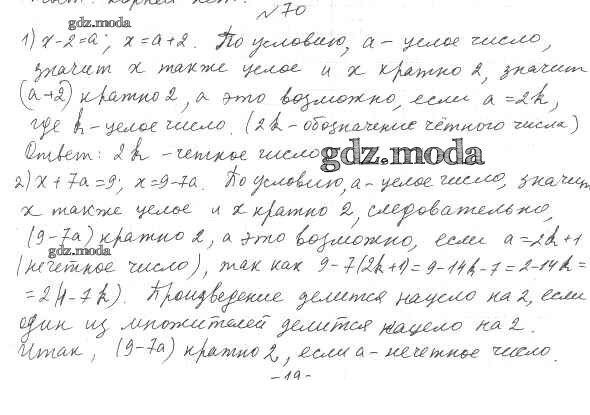 №70
gdz.moda
1) x-2=a; x=a+2. По условию, a - целое число,
значит x также целое и x кратно 2, значит
(a+2) кратно 2, а это возможно, если a=2k,
где k - целое число. (2k - обозначение чётного числа)
Ответ: 2k - четное число
gdz.moda
2) x+7a=9; x=9-7a. По условию, a - целое число, значит
x также целое и x кратно 2, следовательно,
(9-7a) кратно 2, а это возможно, если a=2k+1
gdz.moda
(нечетное число), так как 9-7(2k+1)=9-14k-7=2-14k=
=2(1-7k). Произведение делится нацело на 2, если
один из множителей делится нацело на 2.
Итак, (9-7a) кратно 2, если a - нечетное число.
-19-